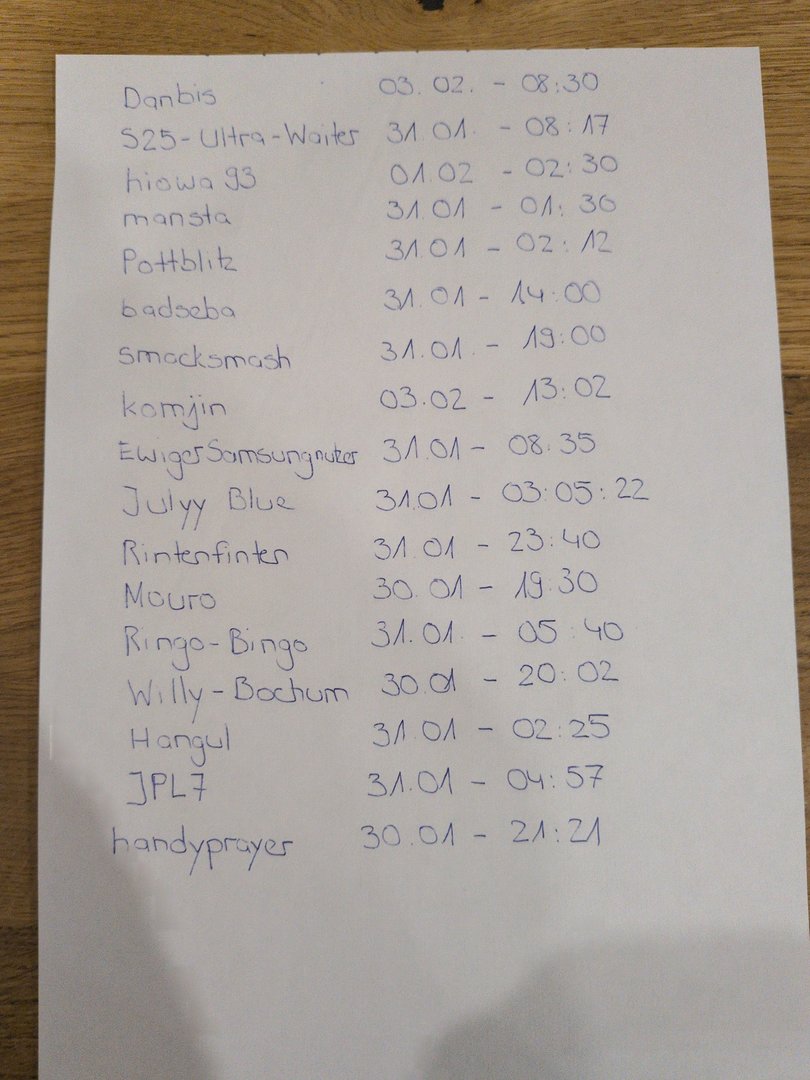 Danbis 03.02. - 08:30
S25-Ultra-Waiter 31.01. - 08:17
hiowa93 01.02 - 02:30
mansta 31.01 - 01:36
Pottblitz 31.01 - 02:12
badseba 31.01 - 14:00
smacksmash 31.01. - 19:00
komjin 03.02 - 13:02
EwigerSamsungnutzer 31.01 - 08:35
Julyy Blue 31.01 - 03:05:22
Rintenfinten 31.01 - 23:40
Mouro 30.01 - 19:30
Ringo-Bingo 31.01. - 05:40
Willy-Bochum 30.01 - 20:02
Hangul 31.01 - 02:25
JPL7 31.01 - 04:57
handyprayer 30.01 - 21:21